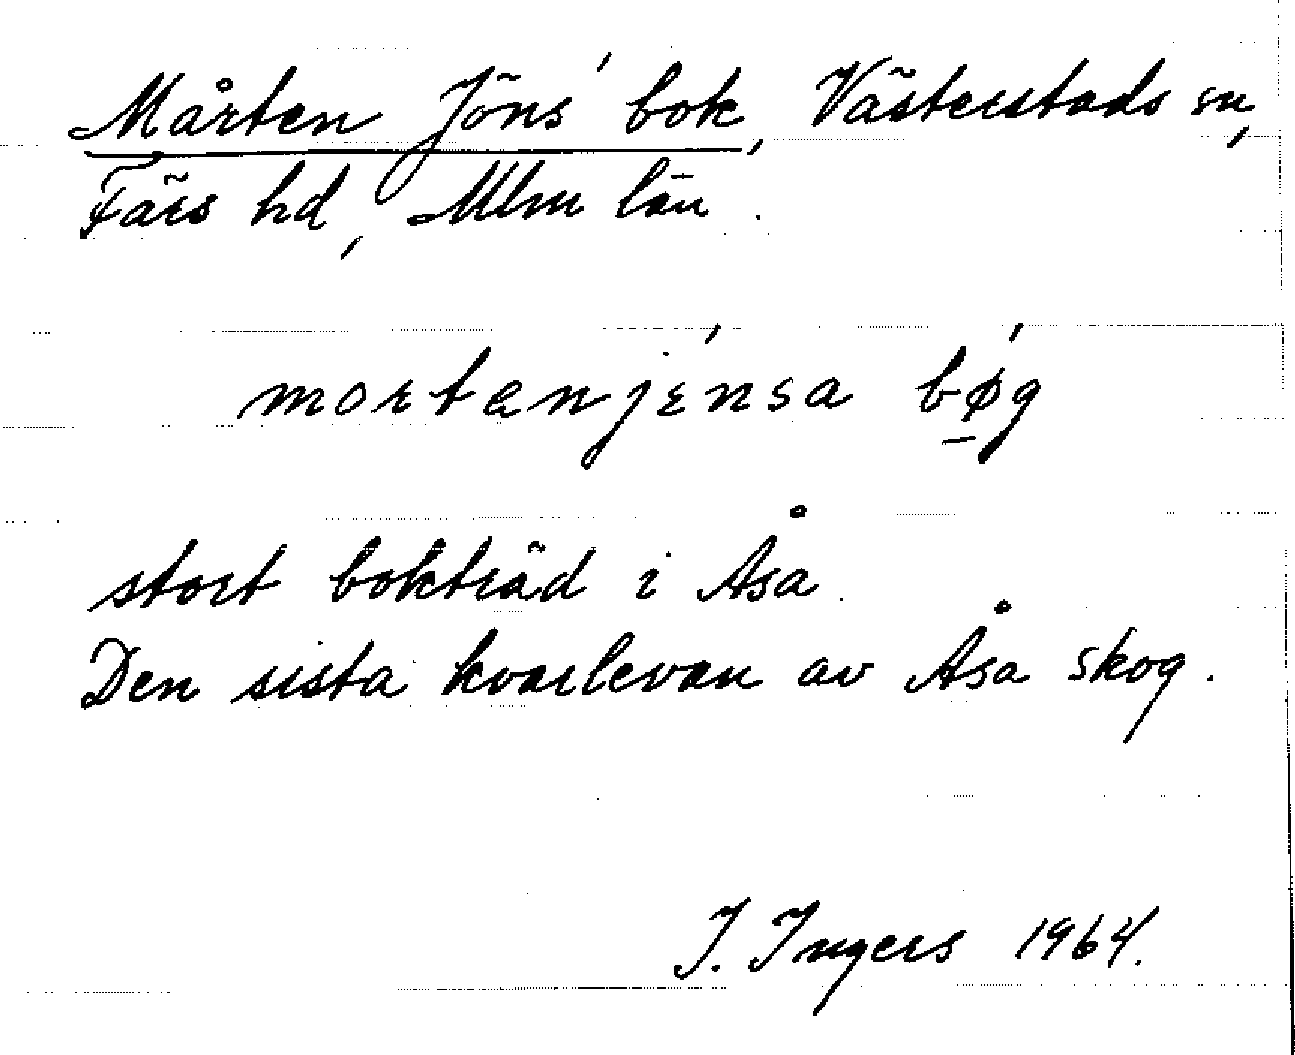 Mårten Jöns' bok, Västerstads sn,
Färs hd, Mlm län.
mortenjɛ́nsa bǿg
stort bokträd i Åsa.
Den sista kvarlevan av Åsa skog.
I. Ingers 1964.